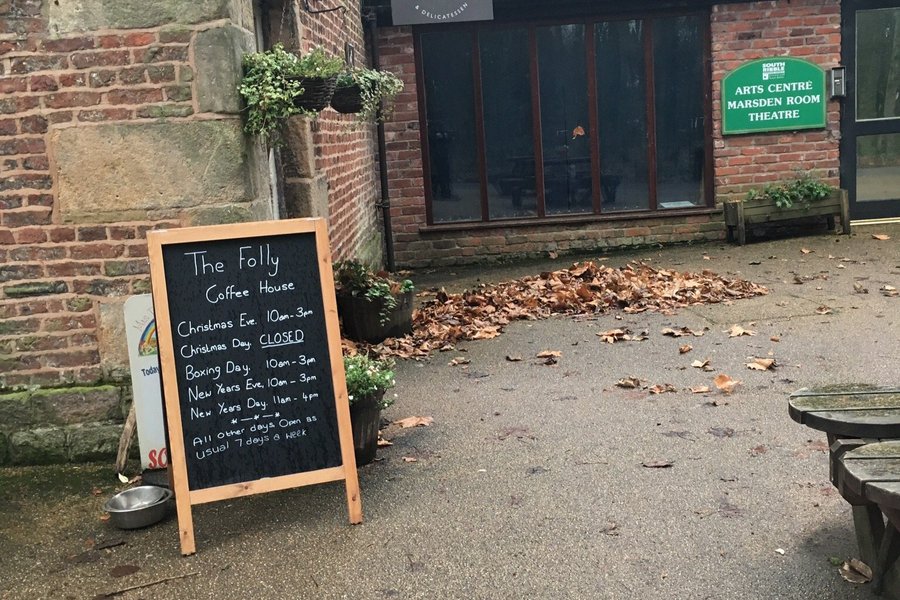 & DELICATESSEN
SOUTH
RIBBLE
ARTS CENTRE
MARSDEN ROOM
THEATRE
The Folly
Coffee House
Christmas Eve. 10am-3pm
Christmas Day. CLOSED
Boxing Day. 10am-3pm
New Years Eve, 10am-3pm
New Years Day. 11am-4pm
* — * — *
All other days. Open as
usual 7 days a week
Today